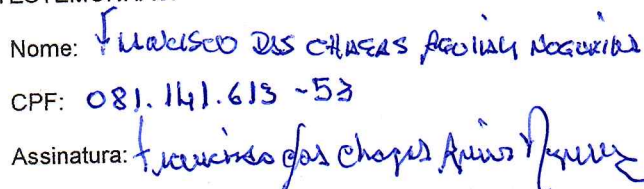 Nome: FRANCISCO DAS CHAGAS AGUIAR NOGUEIRA
CPF: 081.141.613-53
Assinatura: Francisco das Chagas Aguiar Nogueira